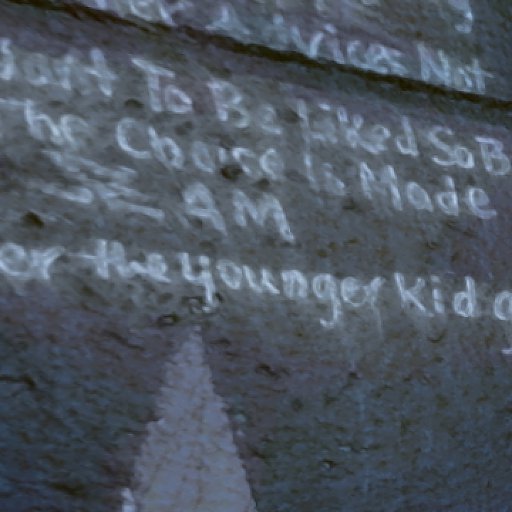 Advices Not
Want To Be Liked So B
The Choise Is Made
AM
er the younger kid g